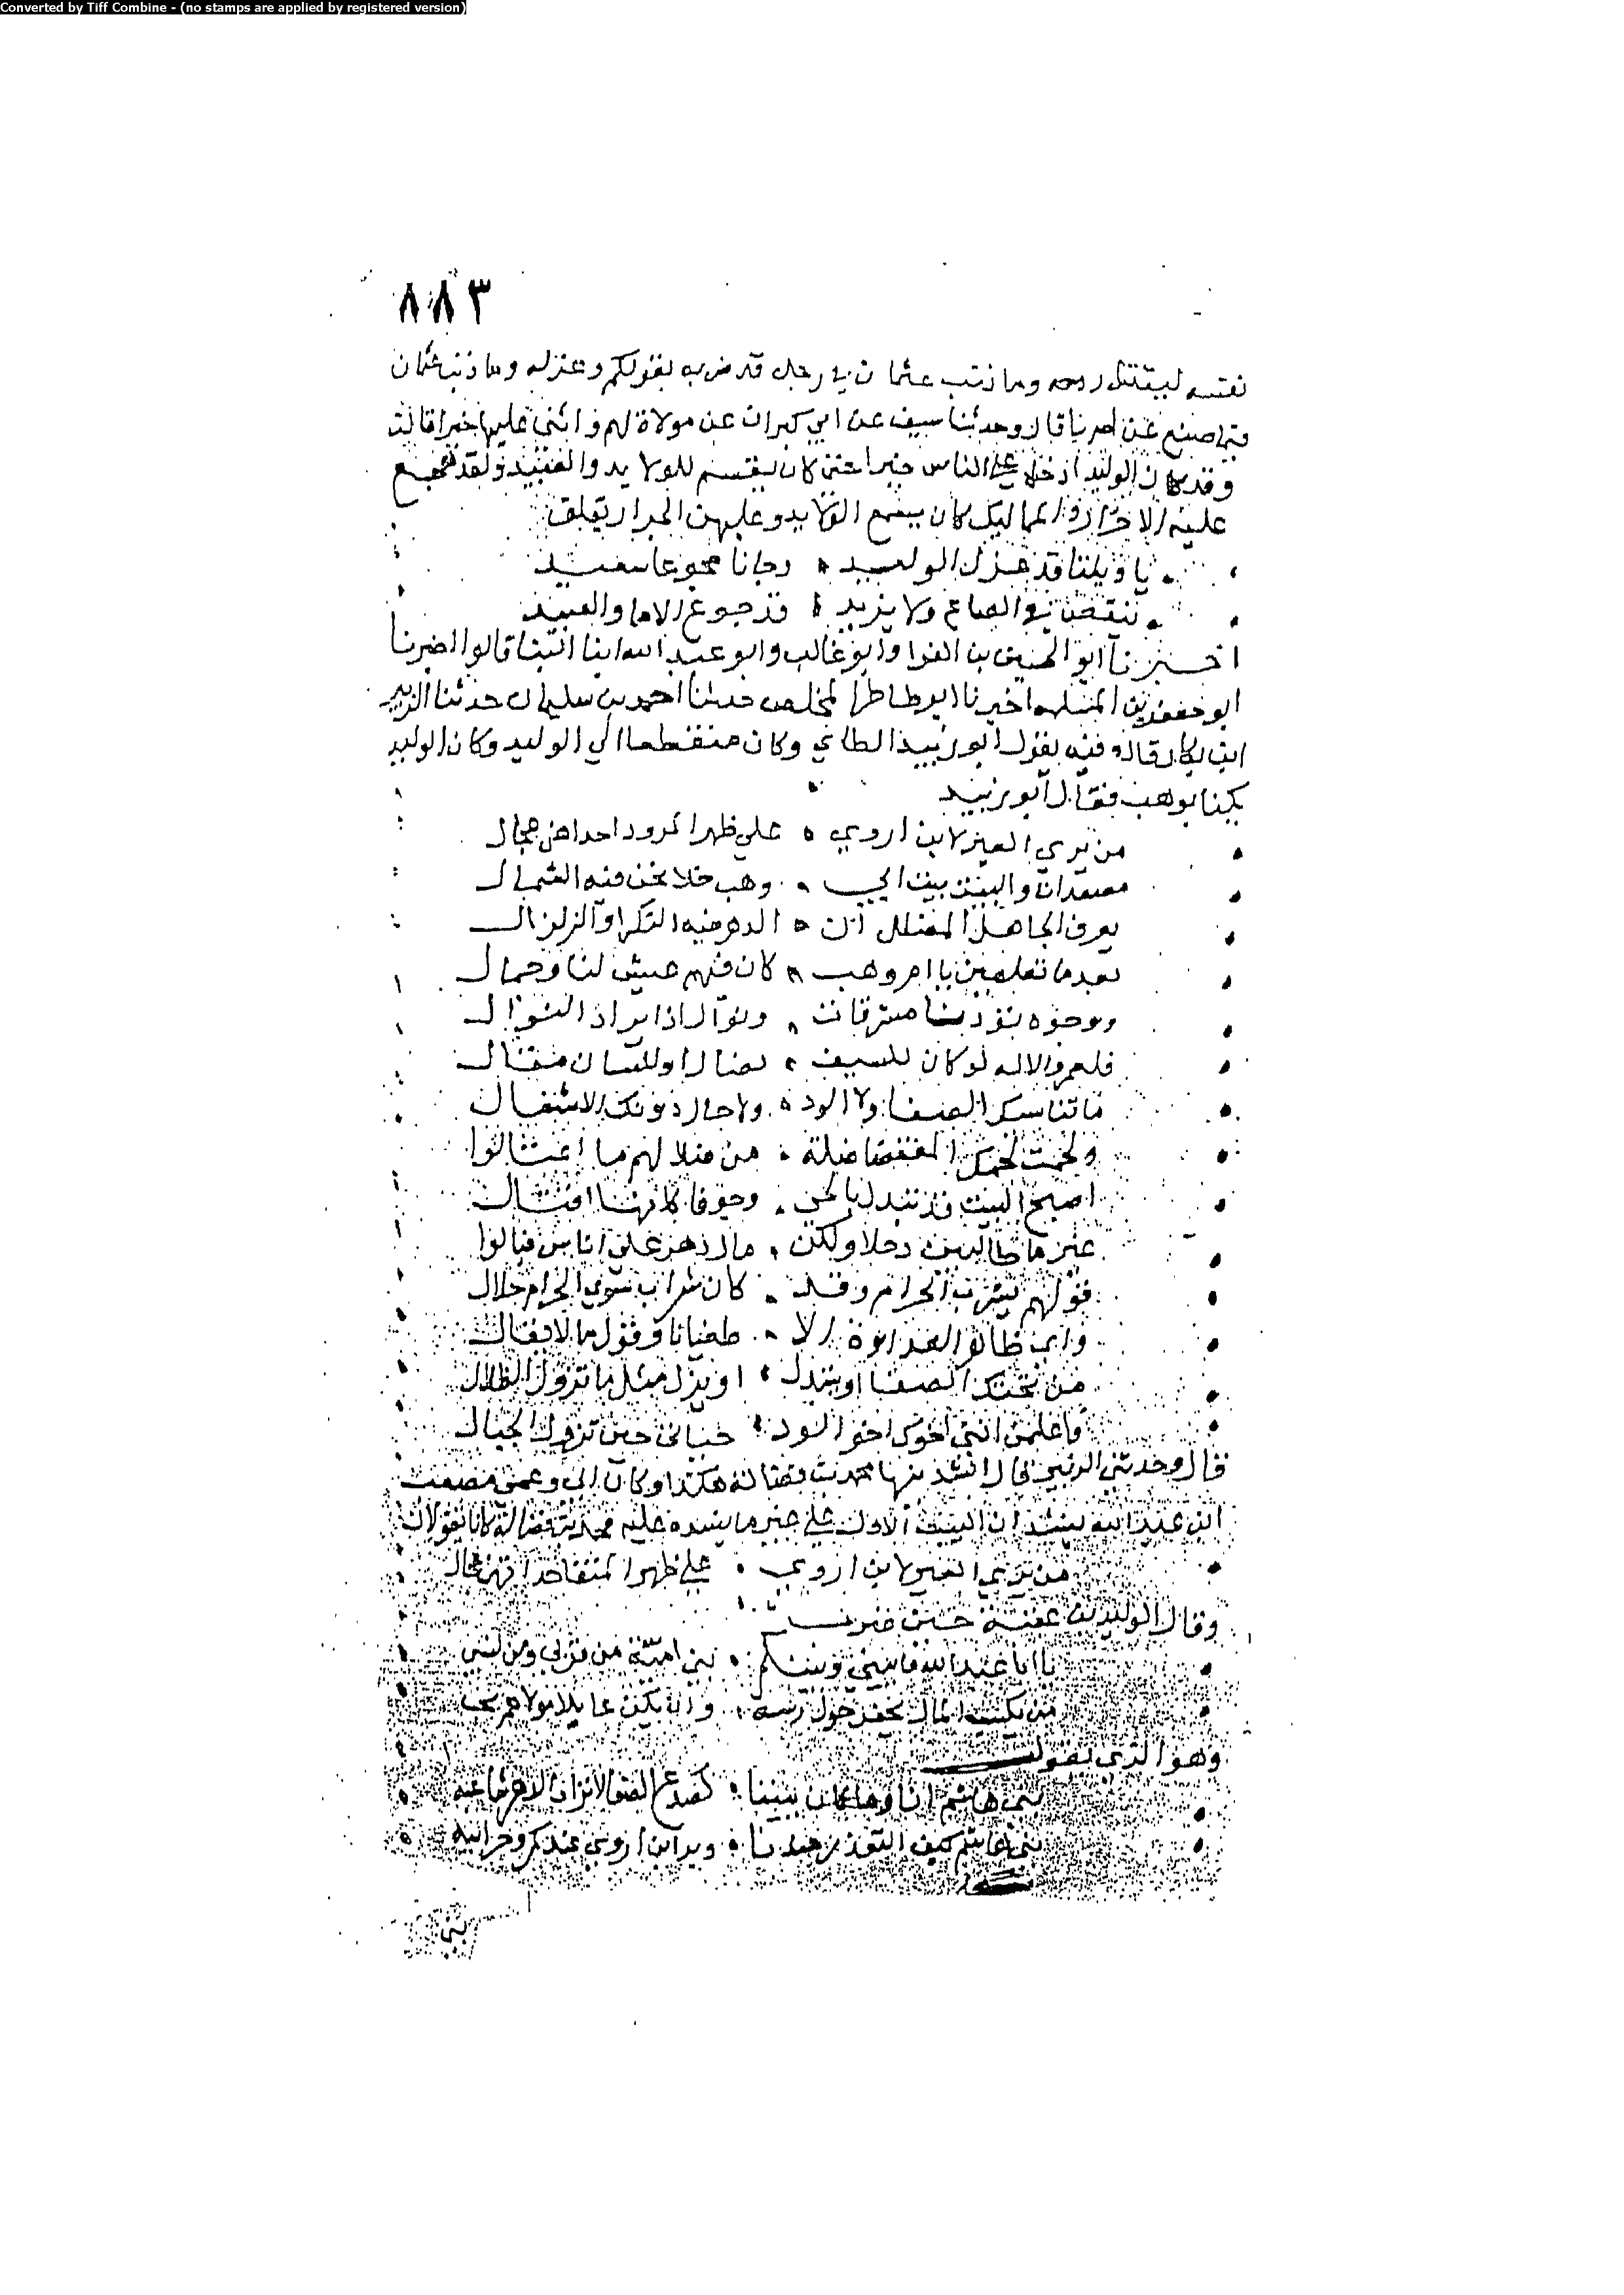 Converted by Tiff Combine - (no stamps are applied by registered version)
٨٨٣
نفسه ليقتل رديه وما ذنب عثمان في رجل قد ضرب بقولكم وعزله وما ذنب عثمان
فيما صنع عن امرنا قال وحدثنا سيف عن ابي كبران عن مولاة لهم واثنى عليها خيرا قالت
وقد كان الوليد ادخل على الناس خيرا حتى كان يقسم للولايد والعبيد ولقد تفجع
عليه الاحرار والمماليك كان يسمع الولايد وعليهن الحداد يقلن
يا ويلنا قد عزل الوليد وجانا مجوعا سعيد
ينقص في الصاع ولا يزيد قد جوع الاما والعبيد
اخبرنا ابو الحسين بن الفرا وابو غالب وابو عبد الله ابنا البنا قالوا اخبرنا
ابو جعفر بن المسلمه اخبرنا ابو طاهر المخلص حدثنا احمد بن سليمان حدثنا الزبير
ابن بكار قال وفيه يقول ابو زبيد الطاي وكان منقطعا الي الوليد وكان الوليد
يكنا بو هب فقال ابو زبيد
من يري العير لابن اروي علي ظهر المرورا حداهن عجال
مصعدات والبيت بيت ابي وهب خلا تحن فيه الشمال
يعرف الجاهل المضلل ان الدهر فيه النكرا والزلزال
بعد ما تعلمين يا ام وهب كان فيهم عيش لنا وجمال
ووجوه بودنا مشرقات ونوال اذا يراد النوال
فلعمر الاله لو كان للسيف نصال او للسان مقال
ما تناسيتك الصفا ولا الود ولا حال دونك الاشغال
ولحمت لحمك المغضا ضلة من ضلالهم ما اغتالوا
اصبح البيت قد تبدل بالحي وجوها كانها اقتال
غير ما طالبين دحلا ولكن مال دهر على اناس فمالوا
قولهم شرب الحرام وقد كان شراب سوى الحرام حلال
وابى ظاهر العداوة الا طغيانا وقول ما لا يقال
من يخنك الصفا او يتبدل او يزل مثل ما تزول الظلال
فاعلمن انني اخوك اخو الود حياتي حتى تزول الجبال
قال وحدثني الزبير قال انشدنيها محمد بن فضالة هكذا وكان ابي وعمي مصعب
ابن عبد الله ينشدان البيت الاول على غير ما ينشده عليه محمد بن فضالة كانا يقولان
من يري العير لابن اروي على ظهر المنقا حداتهن عجال
وقال الوليد بن عقبة حين ضرب
بني امية من قربي ومن نسب
من يكسب المال يحفر حول زبيته وان يكن عايلا مولاهم يخب
وهو الذي يقول
بني هاشم انا وما كان بيننا كصدع الصفا لا يراب الدهر شاعبه
بني هاشم كيف التودد عندنا وبز ابن اروي عندكم وحرايبه
بني